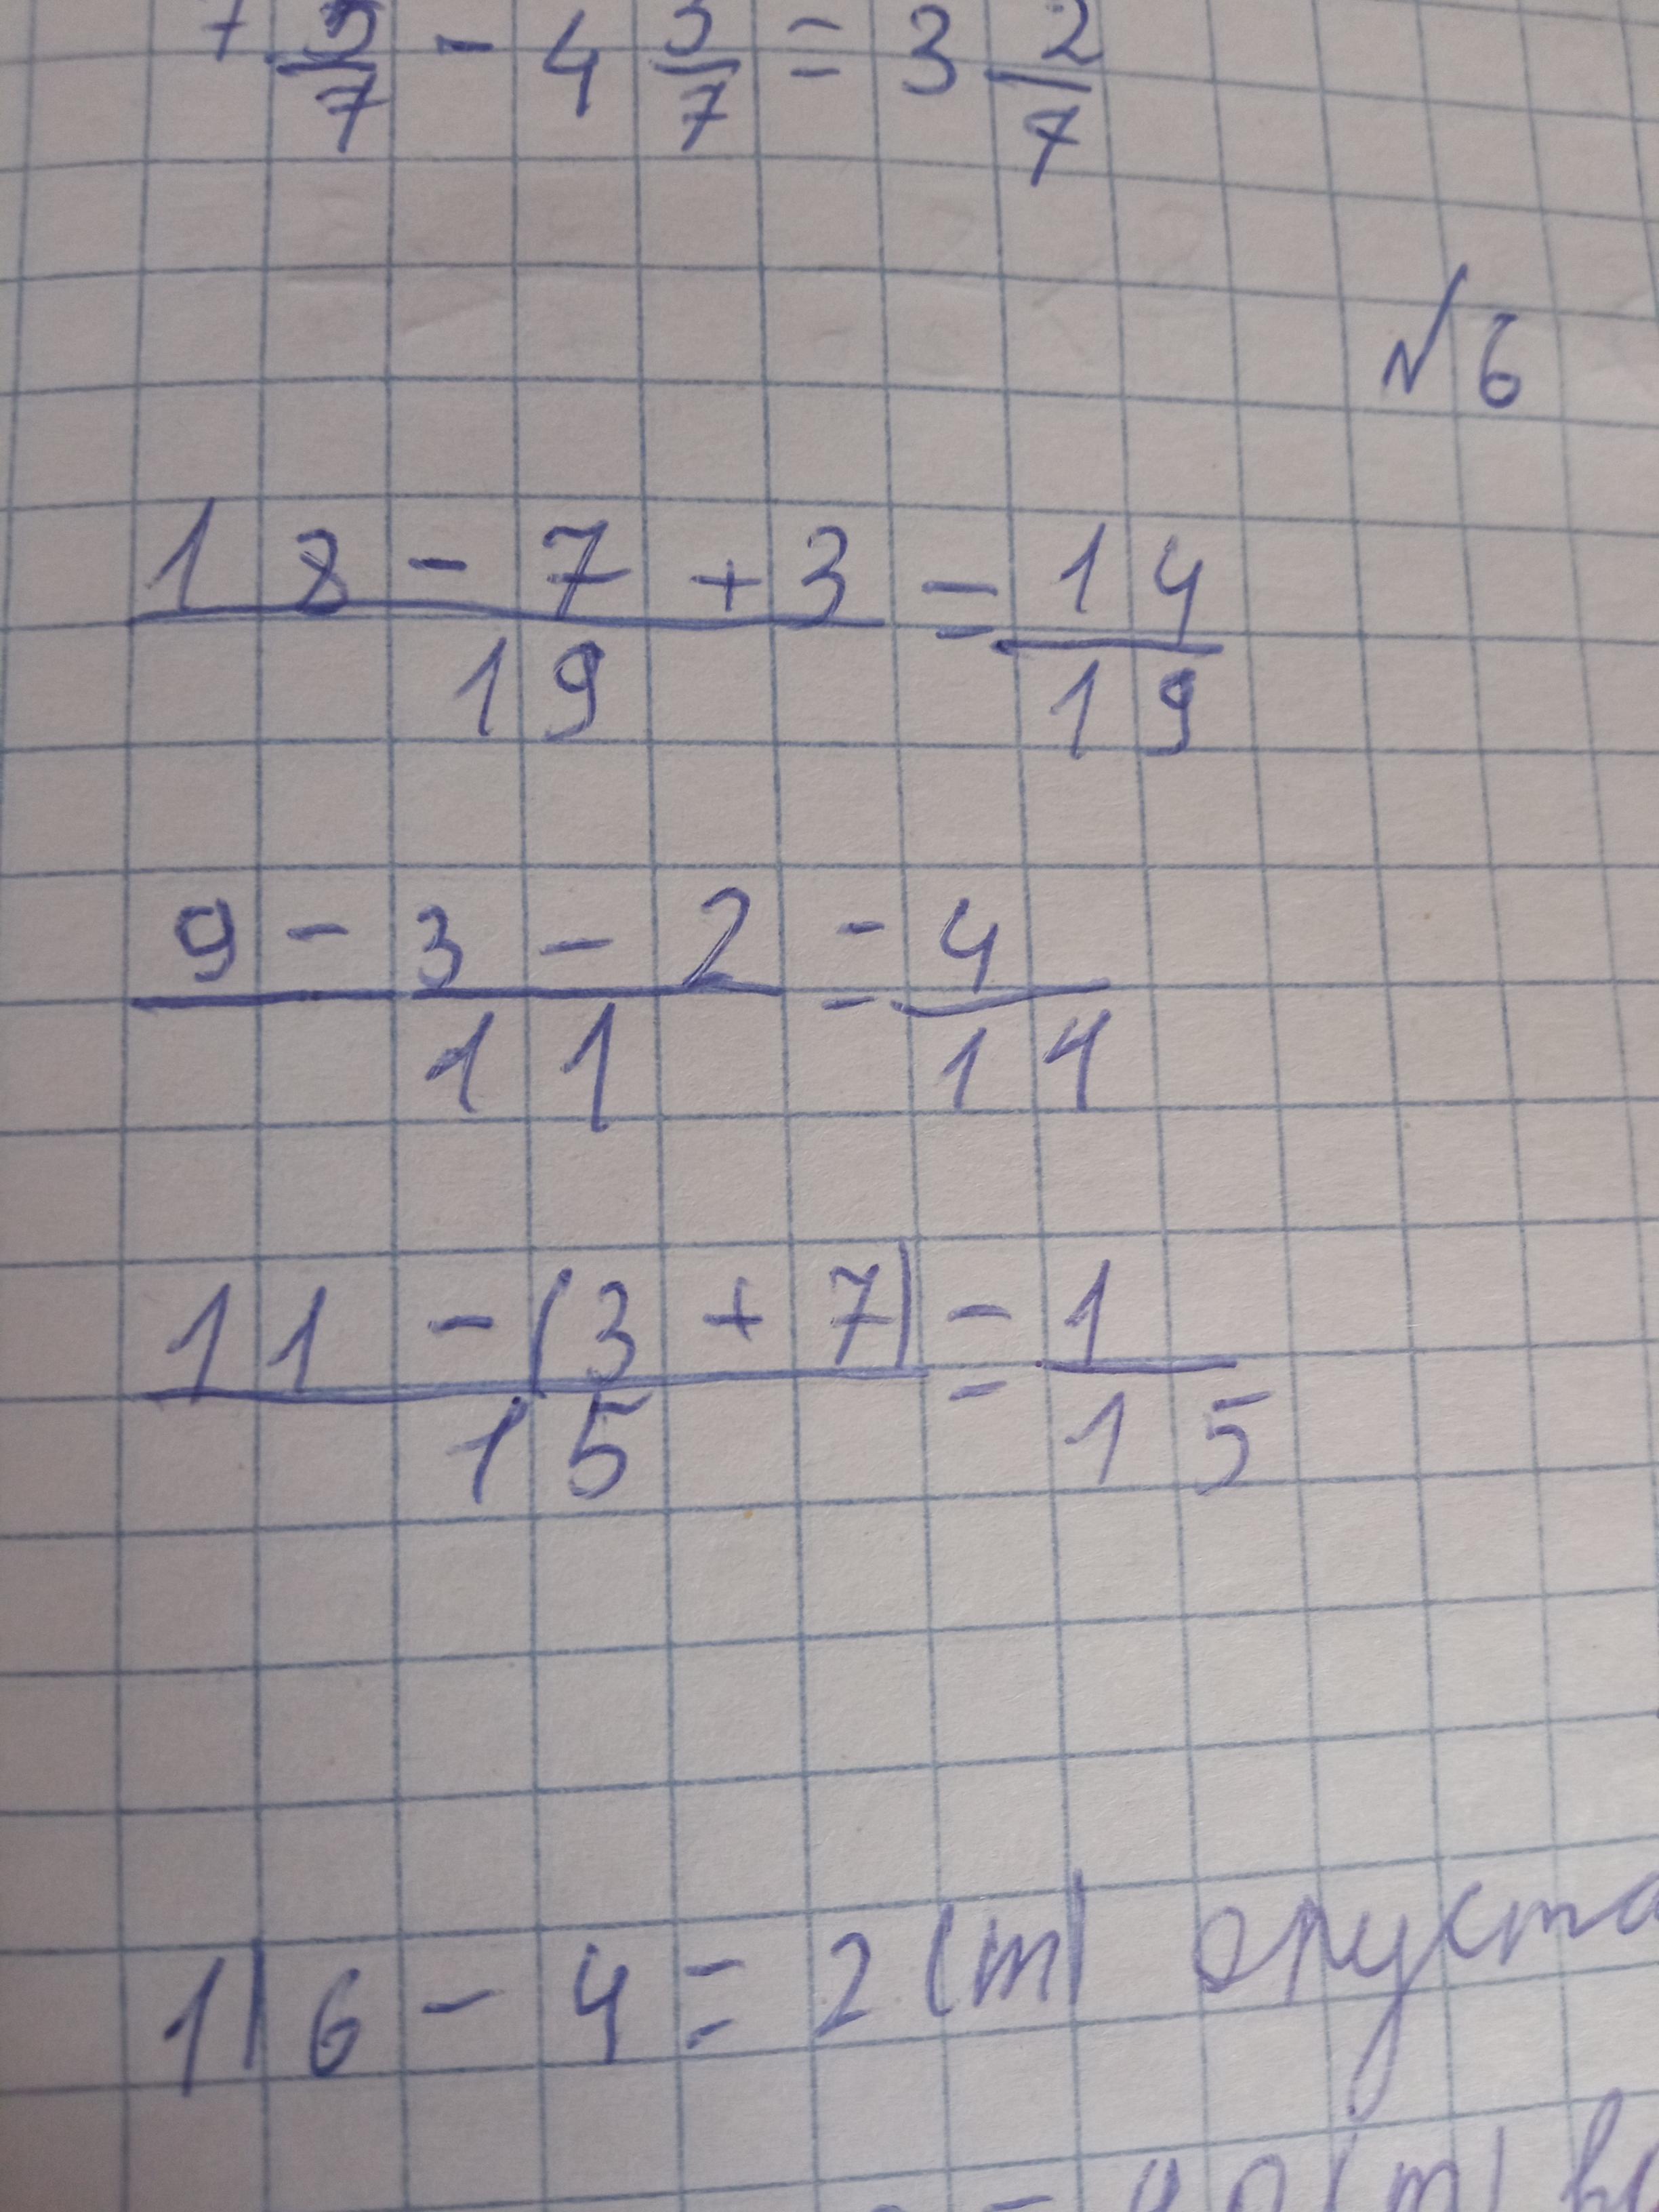 7 5/7 - 4 3/7 = 3 2/7
№6
(18 - 7 + 3)/19 = 14/19
(9 - 3 - 2)/11 = 4/11
(11 - (3 + 7))/15 = 1/15
1) 6 - 4 = 2 (т)